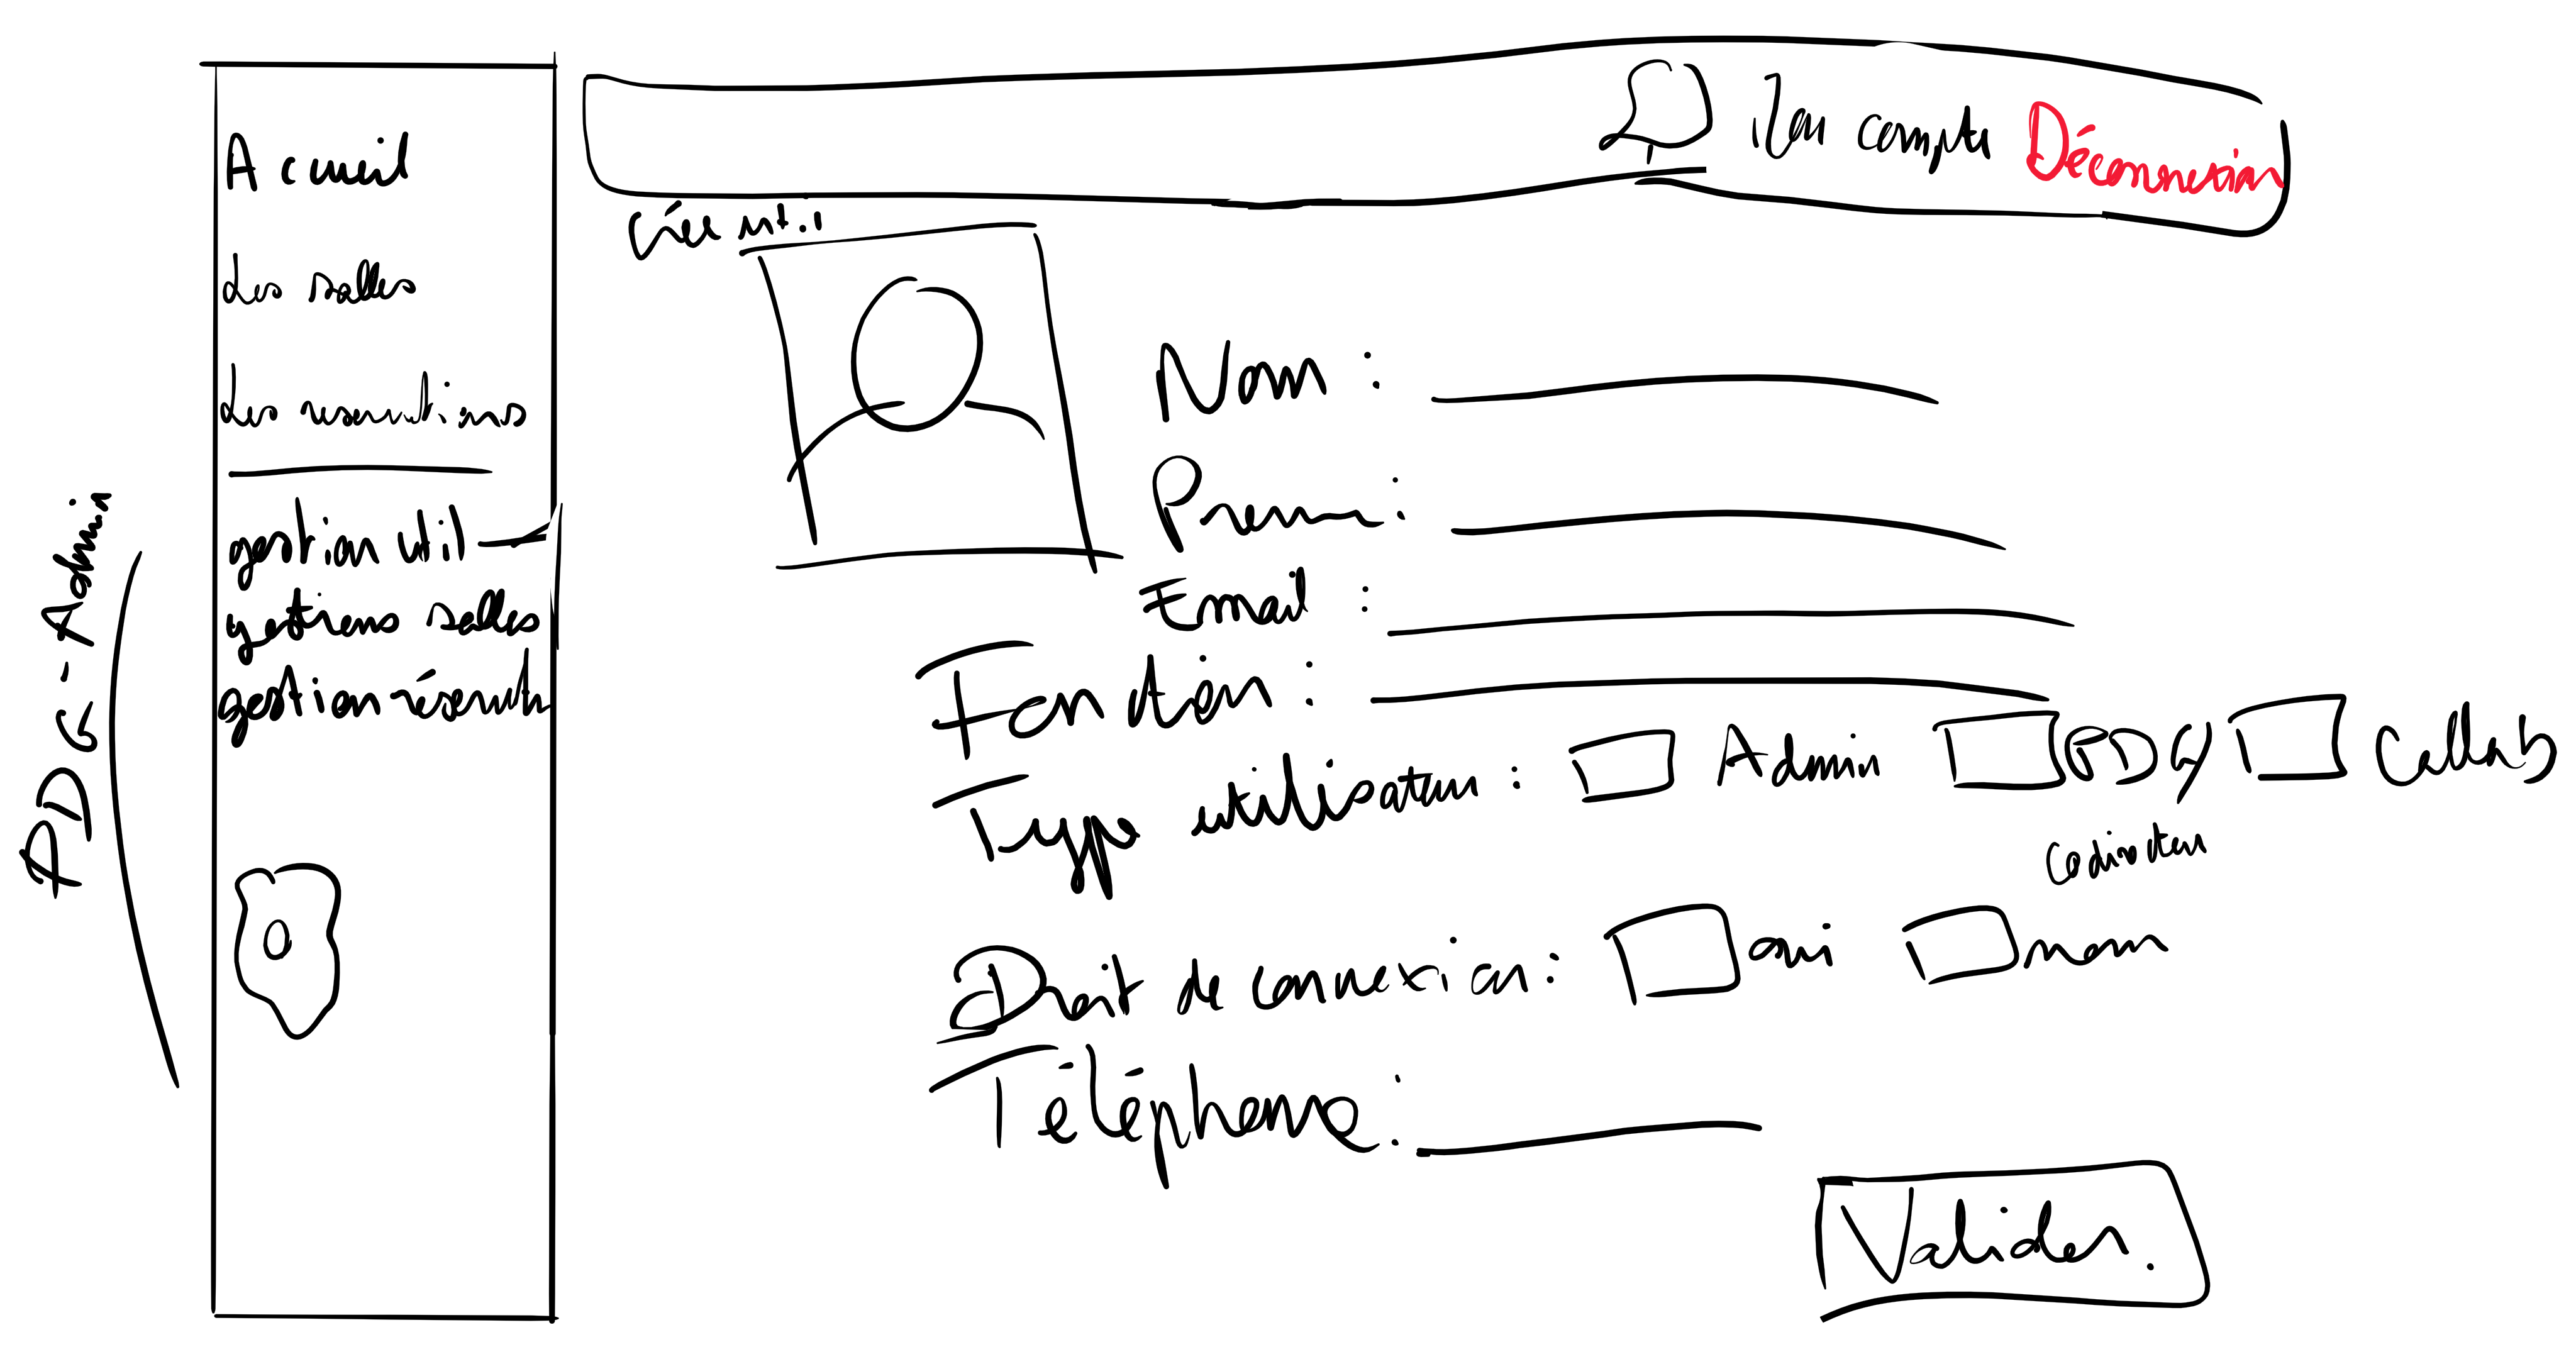 Accueil
Les salles
Les reservations
gestion util
gestions salles
gestion réservat
PDG - Admin
Mon compte Déconnexion
Crée uti
Nom :
Prenom :
Email :
Fonction :
Type utilisateur : Admin PDG Collab
Codirecteur
Droit de connexion : oui non
Téléphone :
Valider.